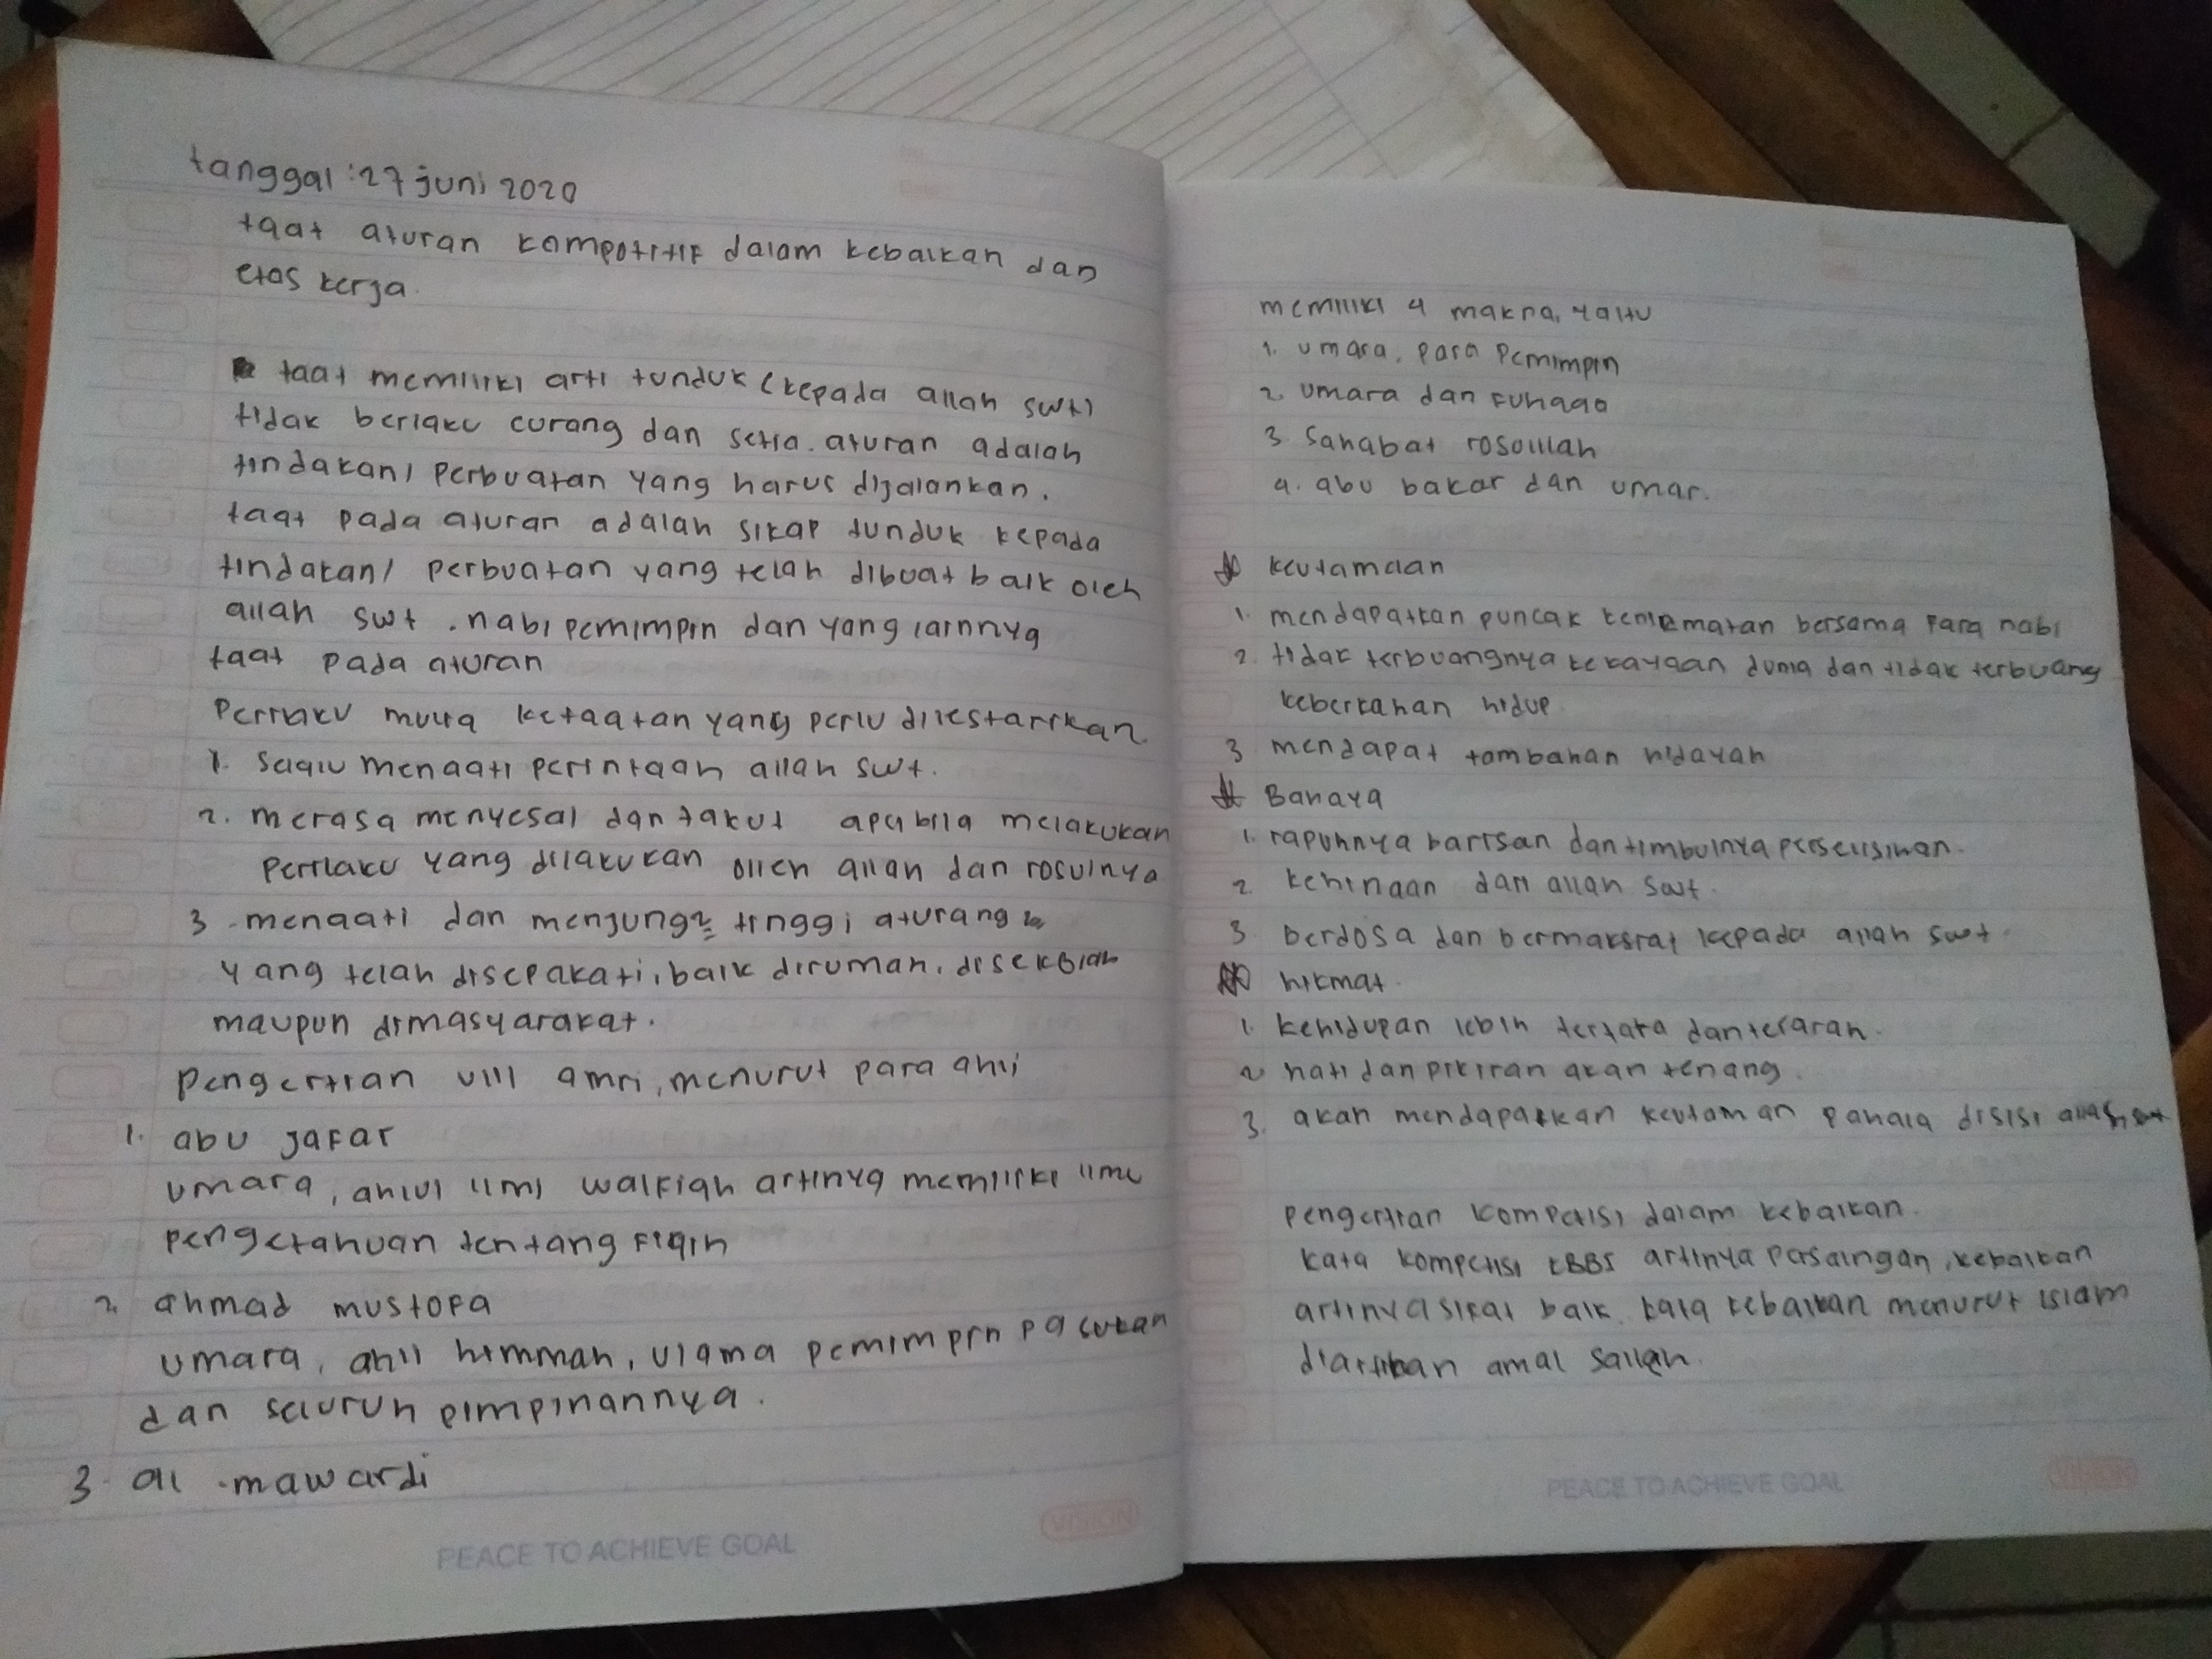 tanggal : 27 juni 2020
taat aturan kompotitif dalam kebaikan dan
etos kerja.
taat memiliki arti tunduk (kepada allah swt)
tidak berlaku curang dan setia. aturan adalah
tindakan/ perbuatan yang harus dijalankan.
taat pada aturan adalah sikap tunduk kepada
tindakan/ perbuatan yang telah dibuat baik oleh
allah swt . nabi pemimpin dan yang lainnya
taat pada aturan
Perilaku mulia ketaatan yang perlu dilestarikan.
1. Selalu menaati perintaah allah swt.
2. merasa menyesal dan takut apabila melakukan
perilaku yang dilakukan olleh allah dan rosulnya
3. menaati dan menjung2 tinggi aturang
yang telah disepakati, baik dirumah, disekolah
maupun dimasyarakat.
pengertian ulil amri, menurut para ahli
1. abu jafar
umara, ahlul ilmi walfiqh artinya memiliki ilmu
pengetahuan tentang fiqih
2. ahmad mustofa
umara, ahli himmah, ulama pemimpin pasukan
dan seluruh pimpinannya.
3. al -mawardi
PEACE TO ACHIEVE GOAL
VISION
memiliki 4 makna, yaitu
1. umara, para pemimpin
2. umara dan
3. Sahabat
4. abu bakar dan umar.
keutamaan
1. mendapatkan puncak bersama para nabi
2. tidak terbuangnya kekayaan dunia dan tidak terbuang
keberkahan hidup
3 mendapat tambahan hidayah
Bahaya
1. rapuhnya barisan dan timbulnya perselisihan.
2. kehinaan dari allah swt.
3. berdosa dan bermaksiat kepada allah swt.
hikmat.
1. kehidupan lebih tertata dan terarah.
2 hati dan pikiran akan tenang.
3. akan mendapatkan keutaman pahala disisi allah swt
pengertian kompetisi dalam kebaikan.
kata kompetisi KBBI artinya persaingan, kebaikan
artinya sifat baik. kata kebaikan menurut islam
diartikan amal
PEACE TO ACHIEVE GOAL
VISION